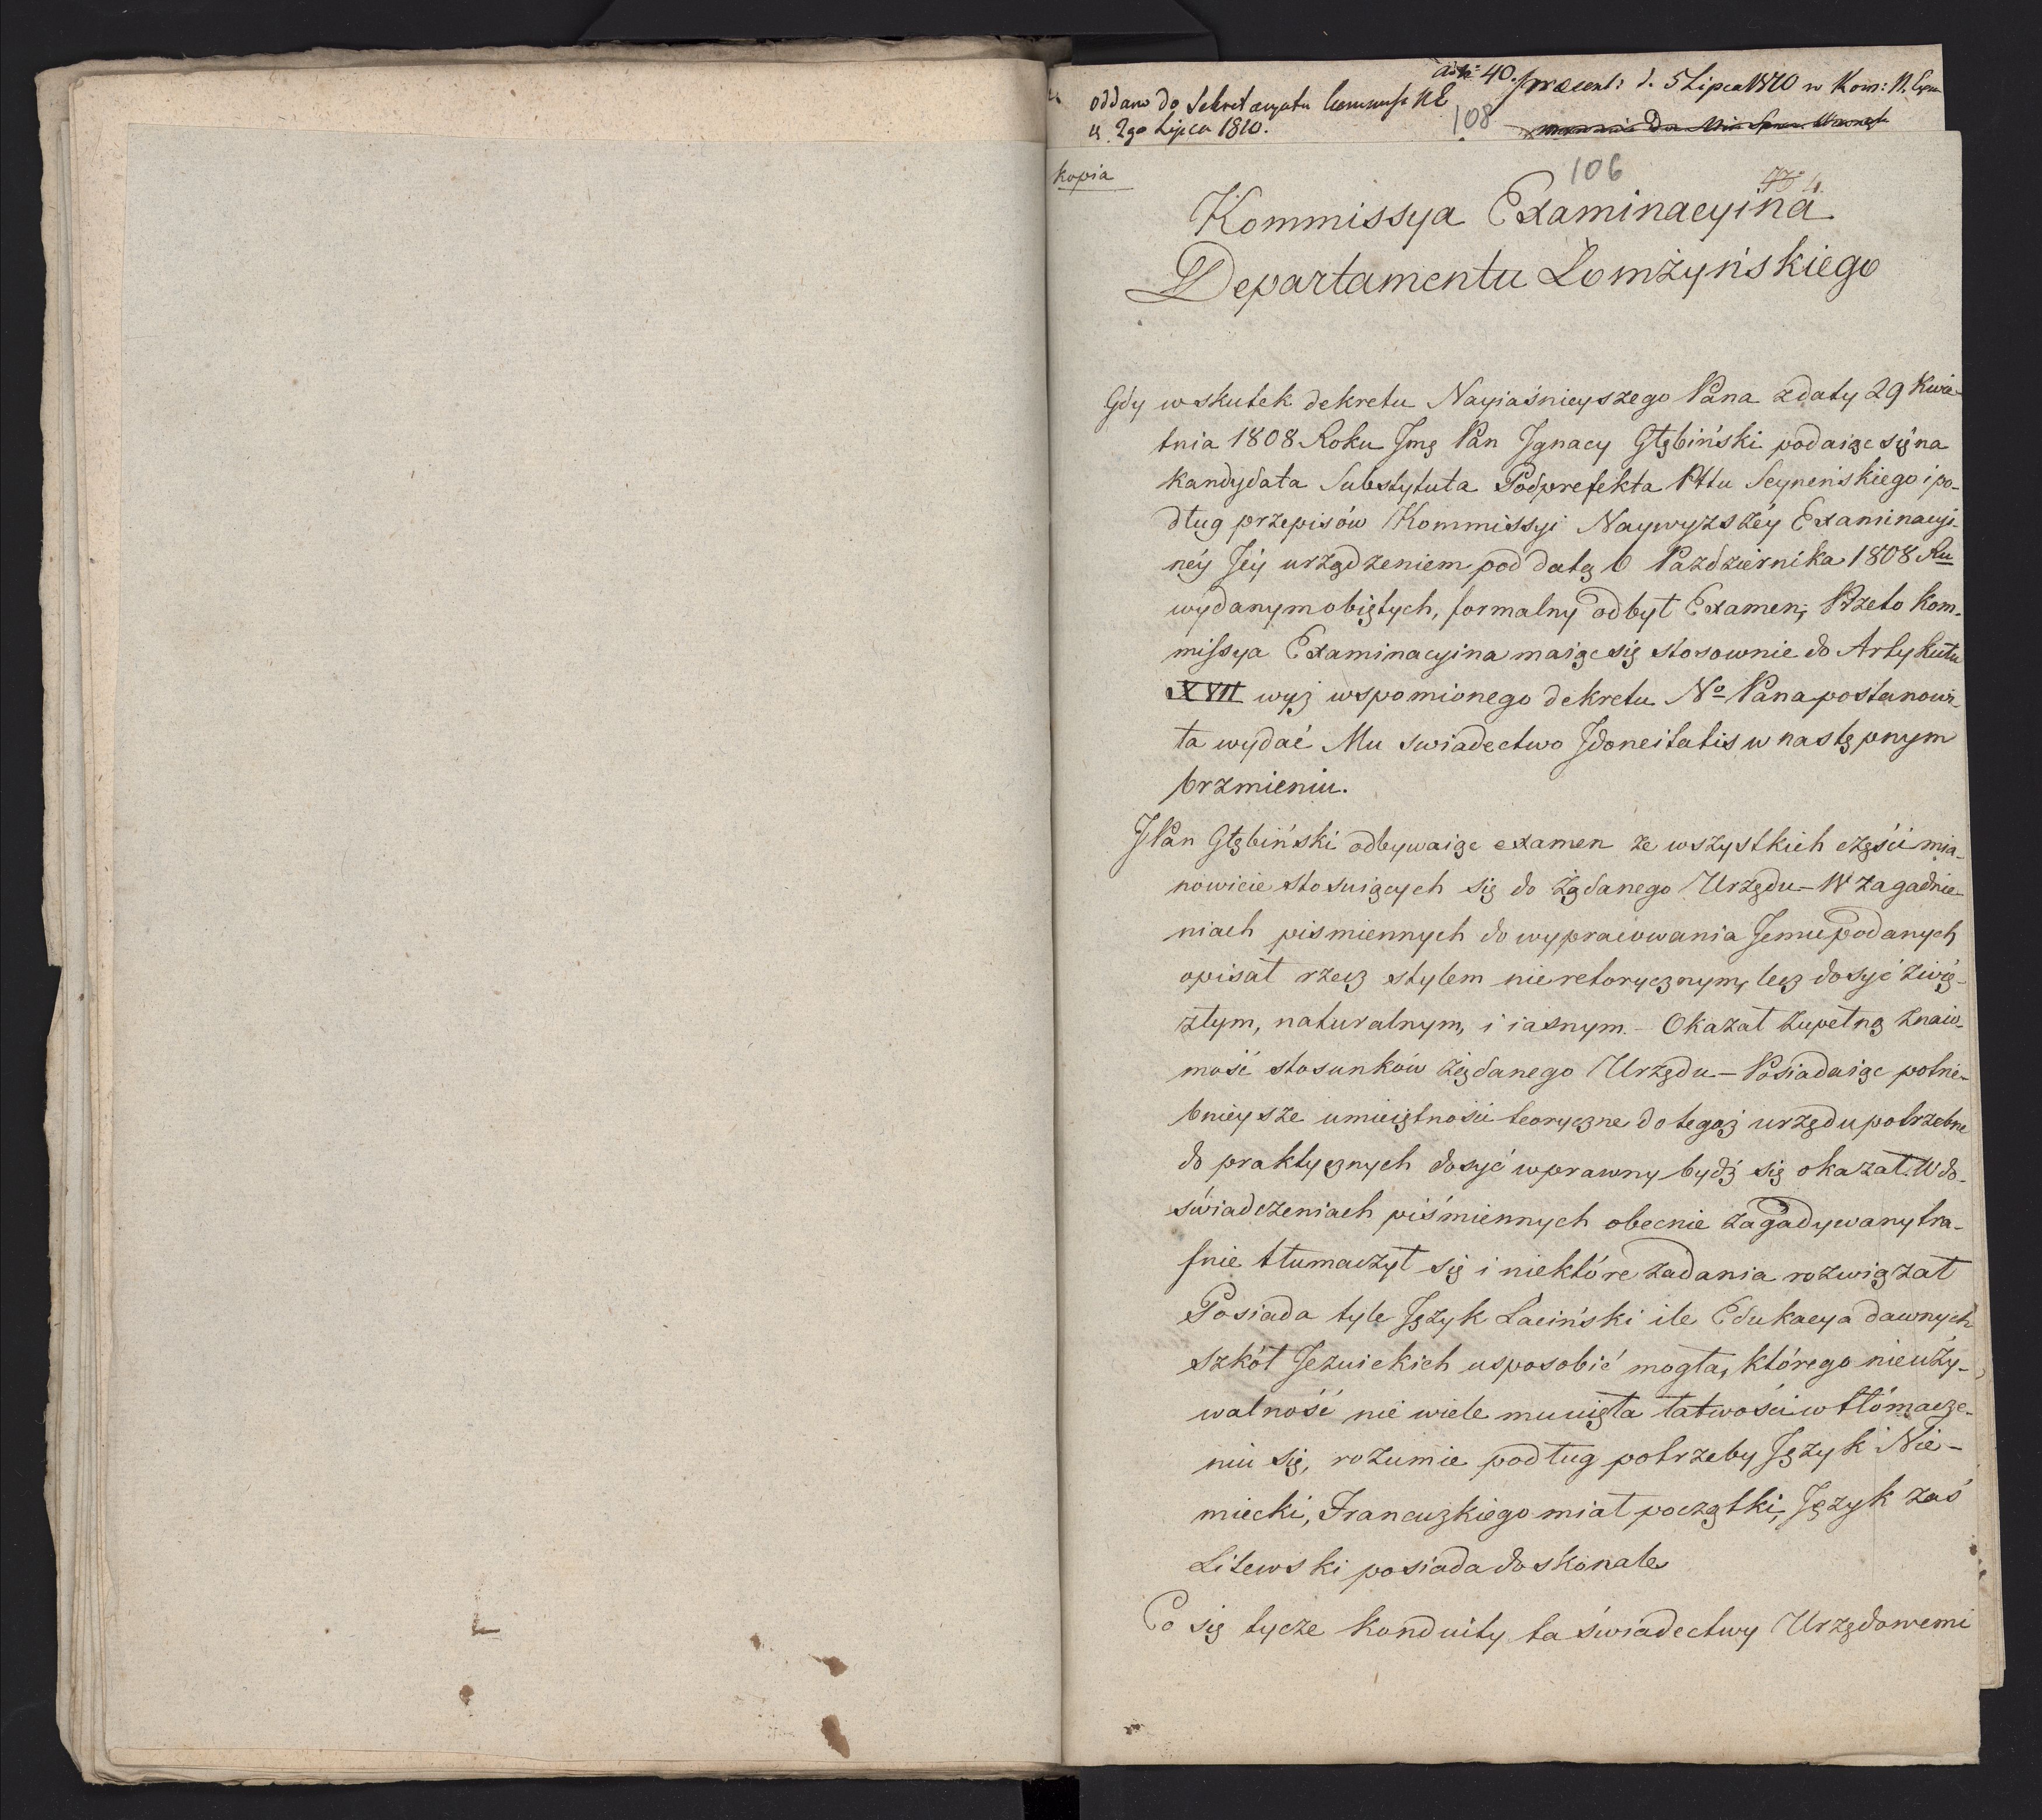 ad N: 40. praesent: d. 5 Lipca 1810 w Kom: N. Exam
oddano do Sekretaryatu Kommissyi NE
d. 2go Lipca 1810.
108
kopia
106
4.
Kommissya Examinacyina
Departamentu Łomżyńskiego
Gdy w skutek dekretu Nayiaśnieyszego Pana z daty 29 Kwie-
tnia 1808 Roku Jmę Pan Jgnacy Głębiński podaiąc się na
kandydata Substytuta Podprefekta Pttu Seyneńskiego i po-
dług przepisów Kommissyi Naywyzszéy Examinacyi-
néy Jéy urządzeniem pod datą 6 Października 1808 Ru
wydanym obiętych, formalny odbył Examen; Przeto Kom-
missya Examinacyina maiąc się stosownie do Artykułu
XVII wyż wspomionego dekretu No Pana postanowi-
ła wydać Mu swiadectwo Jdoneitatis w następnym
brzmieniu.
JPan Głębiński odbywaiąc examen ze wszystkich części mia-
nowicie stosuiących się do żądanego Urzędu – W zagadnie-
niach pismiennych do wypracowania Jemu podanych
opisał rzecz stylem nieretorycznym, lecz dosyć zwię-
złym, naturalnym, i iasnym. – Okazał zupełną znaio-
mość stosunków żądanego Urzędu – Posiadaiąc potrze-
bnieysze umieiętności teoryczne do tegoż urzędu potrzebne
do praktycznych dosyć wprawny bydź się okazał. W do-
świadczeniach piśmiennych obecnie zagadywany tra-
fnie tłumaczył się i niektóre zadania rozwiązał
Posiada tyle Język Łaciński ile Edukacya dawnych
szkół Jezuickich usposobić mogła, którego nieuży-
walność nie wiele mu uięła łatwości w tłómacze-
niu się, rozumie podług potrzeby Język Nie-
miecki, Francuzkiego miał początki, Język zaś
Litewski posiada doskonale
Co się tycze konduity ta świadectwy Urzędowemi